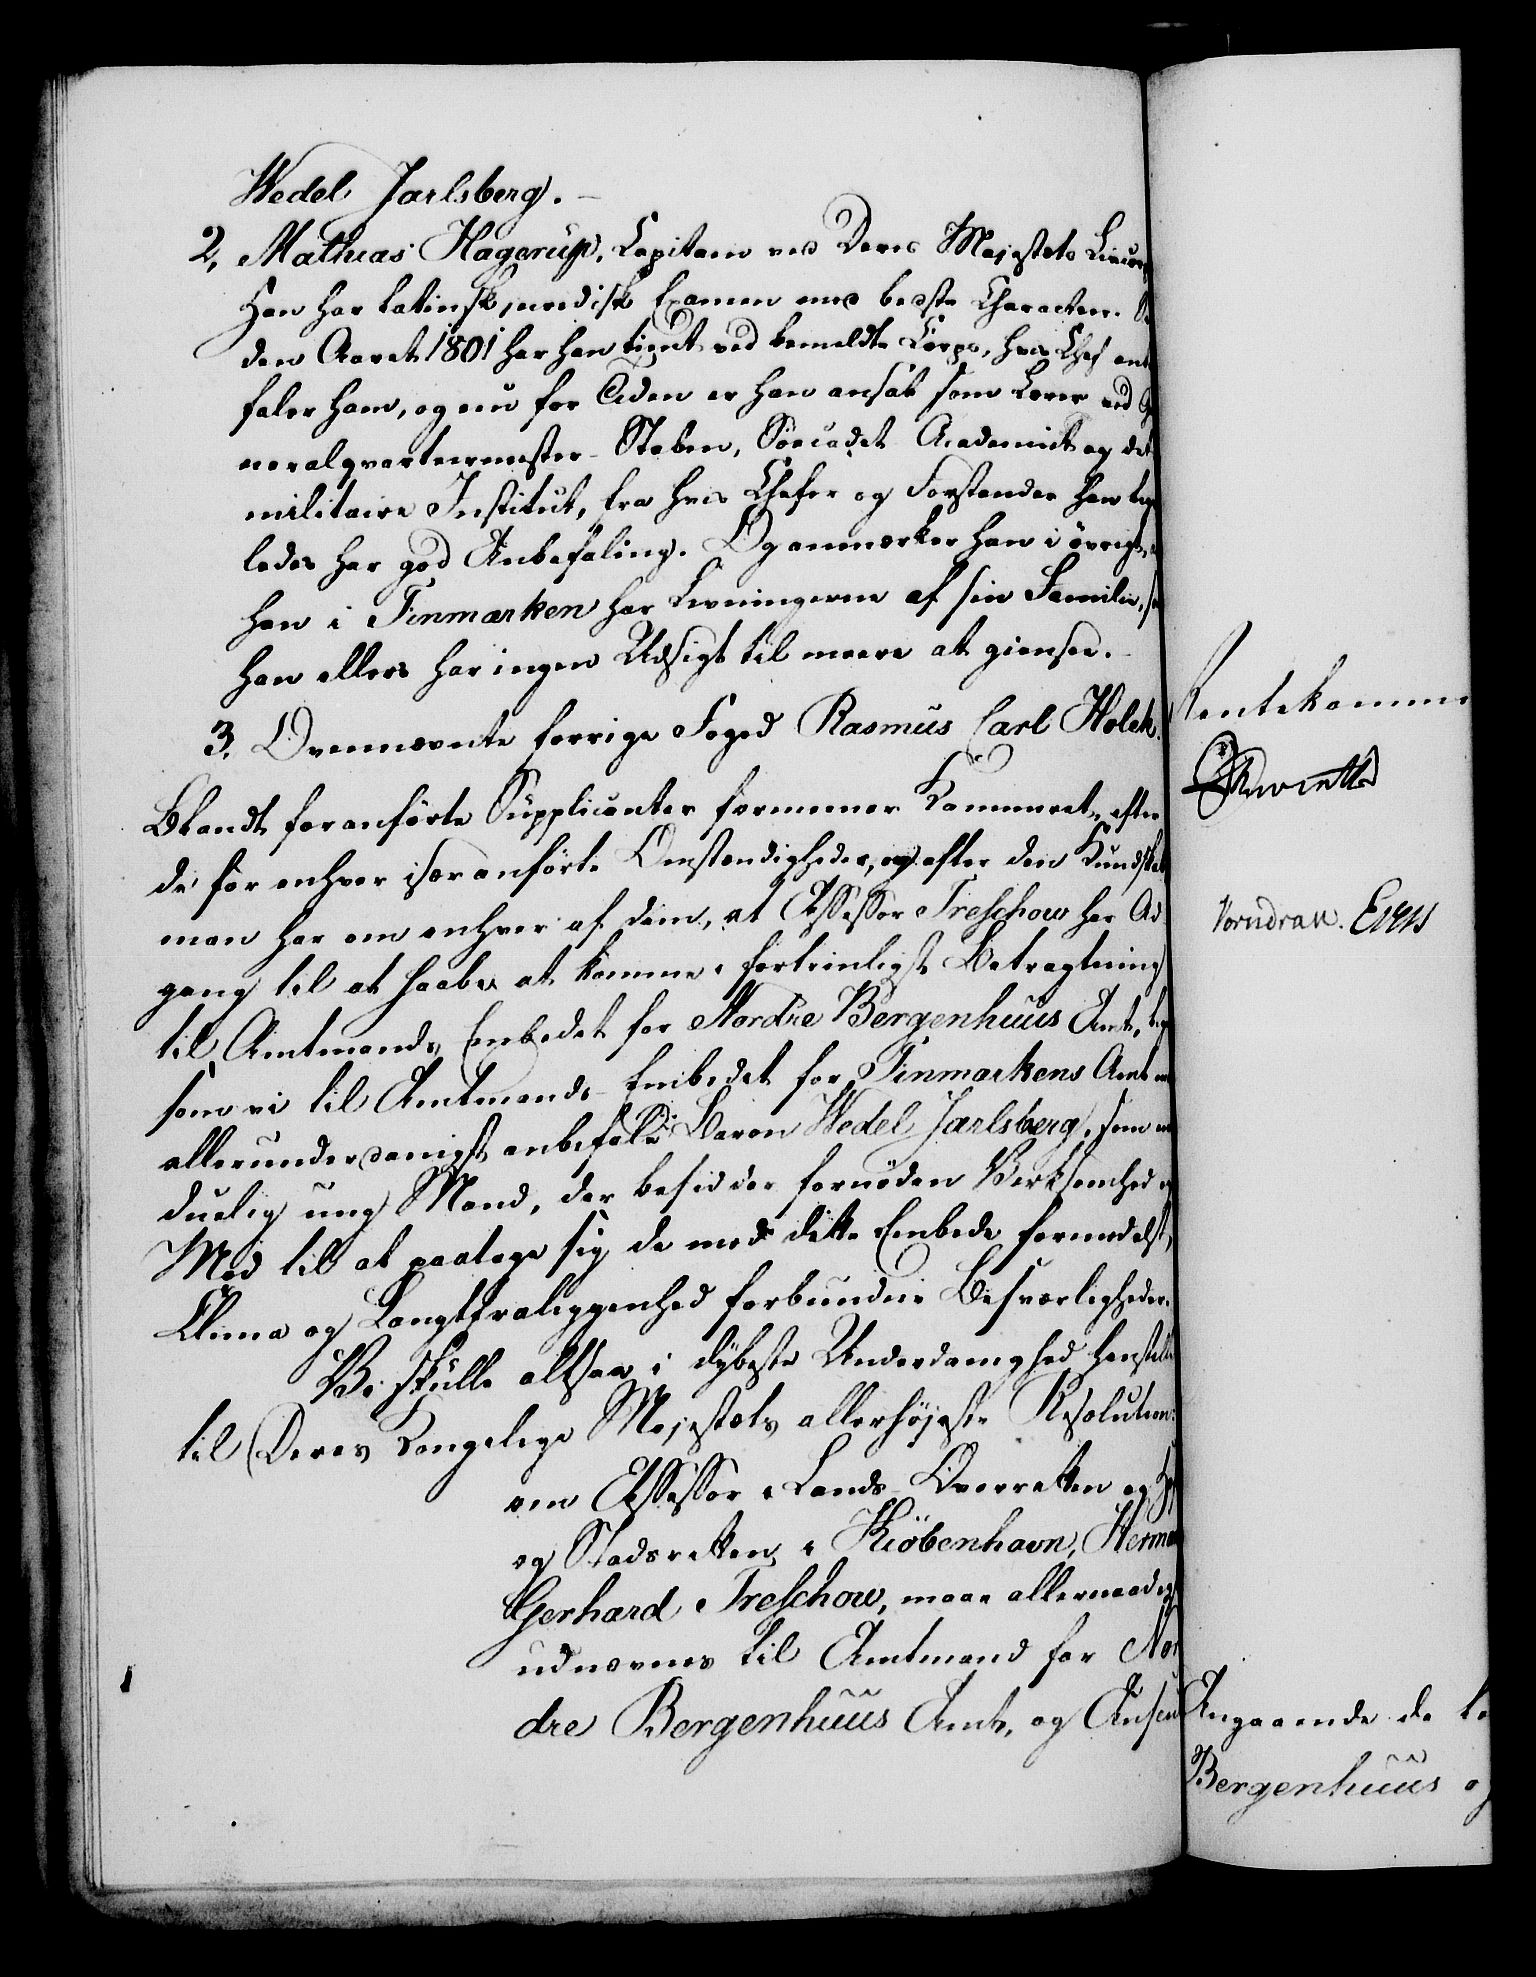 Wedel Jarlsberg. –
2, Mathias Hagerup, Capitain ved Deres Majestæts Livcorps
Han har latinsk juridisk Examen med bedste Character. Si
den Aaret 1801 har han tient ved bemeldte Corps, hvis Chef anbe
faler ham, og nu for Tiden er han ansat som Lærer ved Ge
neralqvarteermester-Staben, Söecadet Academiet og det
militaire Institut, fra hvis Chefer og Forstander han lige
ledes har god Anbefaling. Og anmærker han i övrigt, at
han i Finmarken har Levningerne af sin Familie, som
han ellers har ingen Udsigt til mere at giensee.
3. Ovennævnte forrige Foged Rasmus Carl Holck.
Blandt foranförte Supplicanter formener Kammeret, efter
de for enhver især anförte Omstændigheder, og efter den Kundskab
man har om enhver af dem, at Assessor Treschow har Ad
gang til at haabe at komme i fortrinligst Betragtning
til Amtmands Embedet for Nordre Bergenhuus Amt, lige
som vi til Amtmands-Embedet for Finmarkens Amt maae
allerunderdanigst anbefale Baron Wedel Jarlsberg, som en
duelig ung Mand, der besidder fornöden Virksomhed og
Mod til at paatage sig de med dette Embede formedelst
Clima og Langtfraliggenhed forbundne Besværligheder.
Vi skulle altsaa i dybeste Underdanighed henstille
til Deres Kongelige Majestæts allerhöjeste Resolution:
om Assessor i Lands-Overretten og Hof
og Stadsretten i Kiöbenhavn, Herman
Gerhard Treschow, maae allernaadigst
udnævnes til Amtmand for Nor
dre Bergenhuus Amt, og Auscul
Rentekamme
Vorndran. Evers
Angaaende de
Bergenhuus og